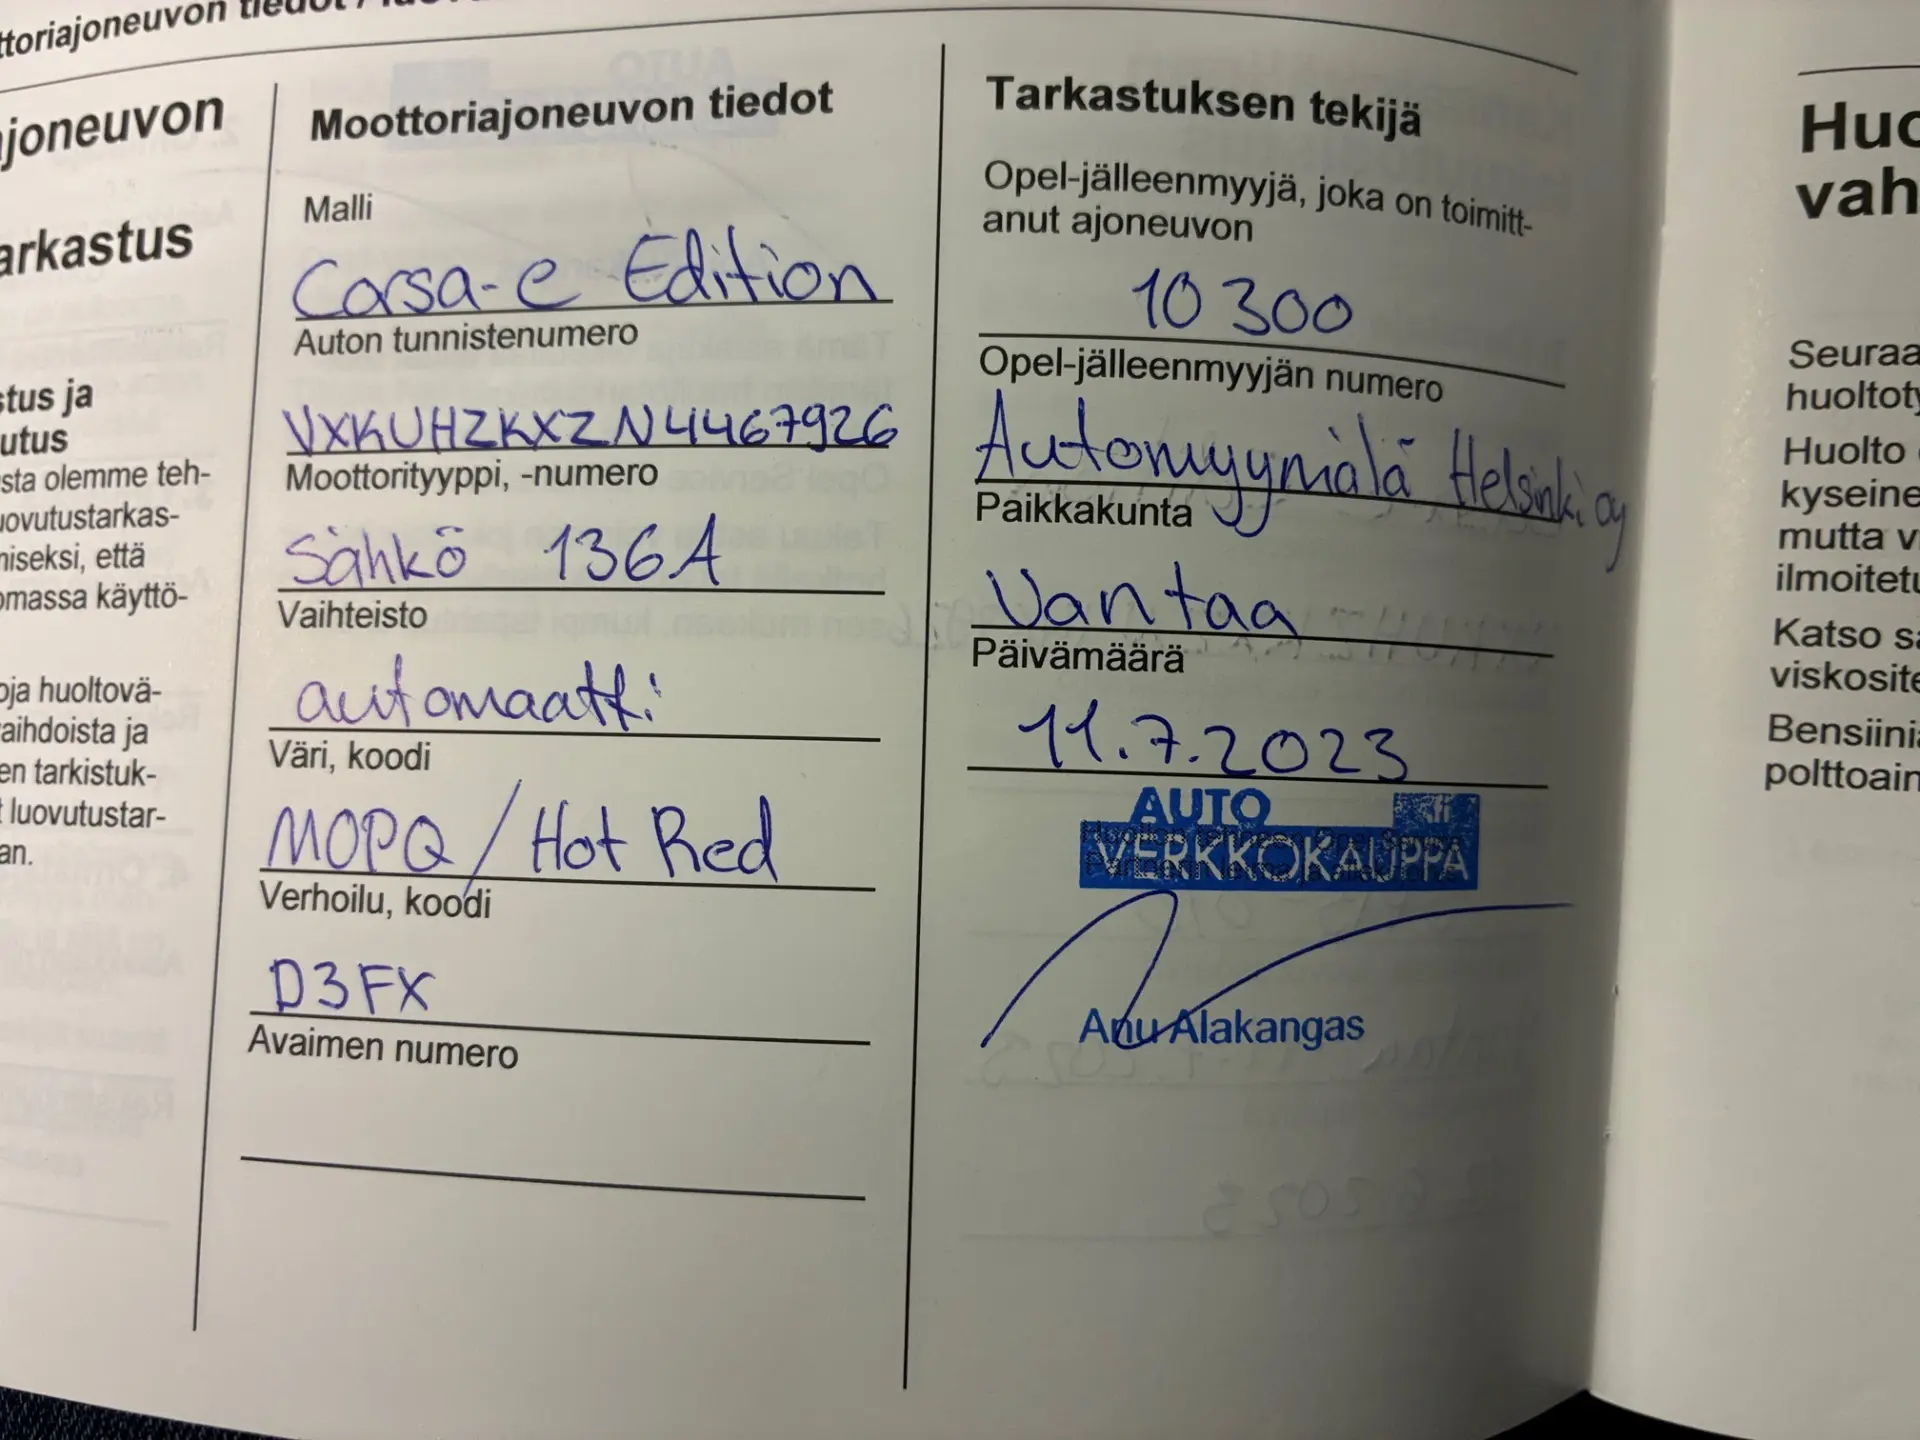 ttoriajoneuvon tiedot /
ajoneuvon
arkastus
stus ja
utus
sta olemme teh-
uovutustarkas-
niseksi, että
omassa käyttö-
oja huoltovä-
aihdoista ja
en tarkistuk-
t luovutustar-
an.
Moottoriajoneuvon tiedot
Malli
Corsa-e Edition
Auton tunnistenumero
VXKUHZKXZN4467926
Moottorityyppi, -numero
Sähkö 136A
Vaihteisto
automaatti
Väri, koodi
MOPQ / Hot Red
Verhoilu, koodi
D3FX
Avaimen numero
Tarkastuksen tekijä
Opel-jälleenmyyjä, joka on toimitt-
anut ajoneuvon
10 300
Opel-jälleenmyyjän numero
Automyymälä Helsinki oy
Paikkakunta
Vantaa
Päivämäärä
11.7.2023
AUTO
.fi
VERKKOKAUPPA
Anu Alakangas
Huo
vah
Seuraa
huoltoty
Huolto
kyseine
mutta v
ilmoitetu
Katso sa
viskosite
Bensiini
polttoain